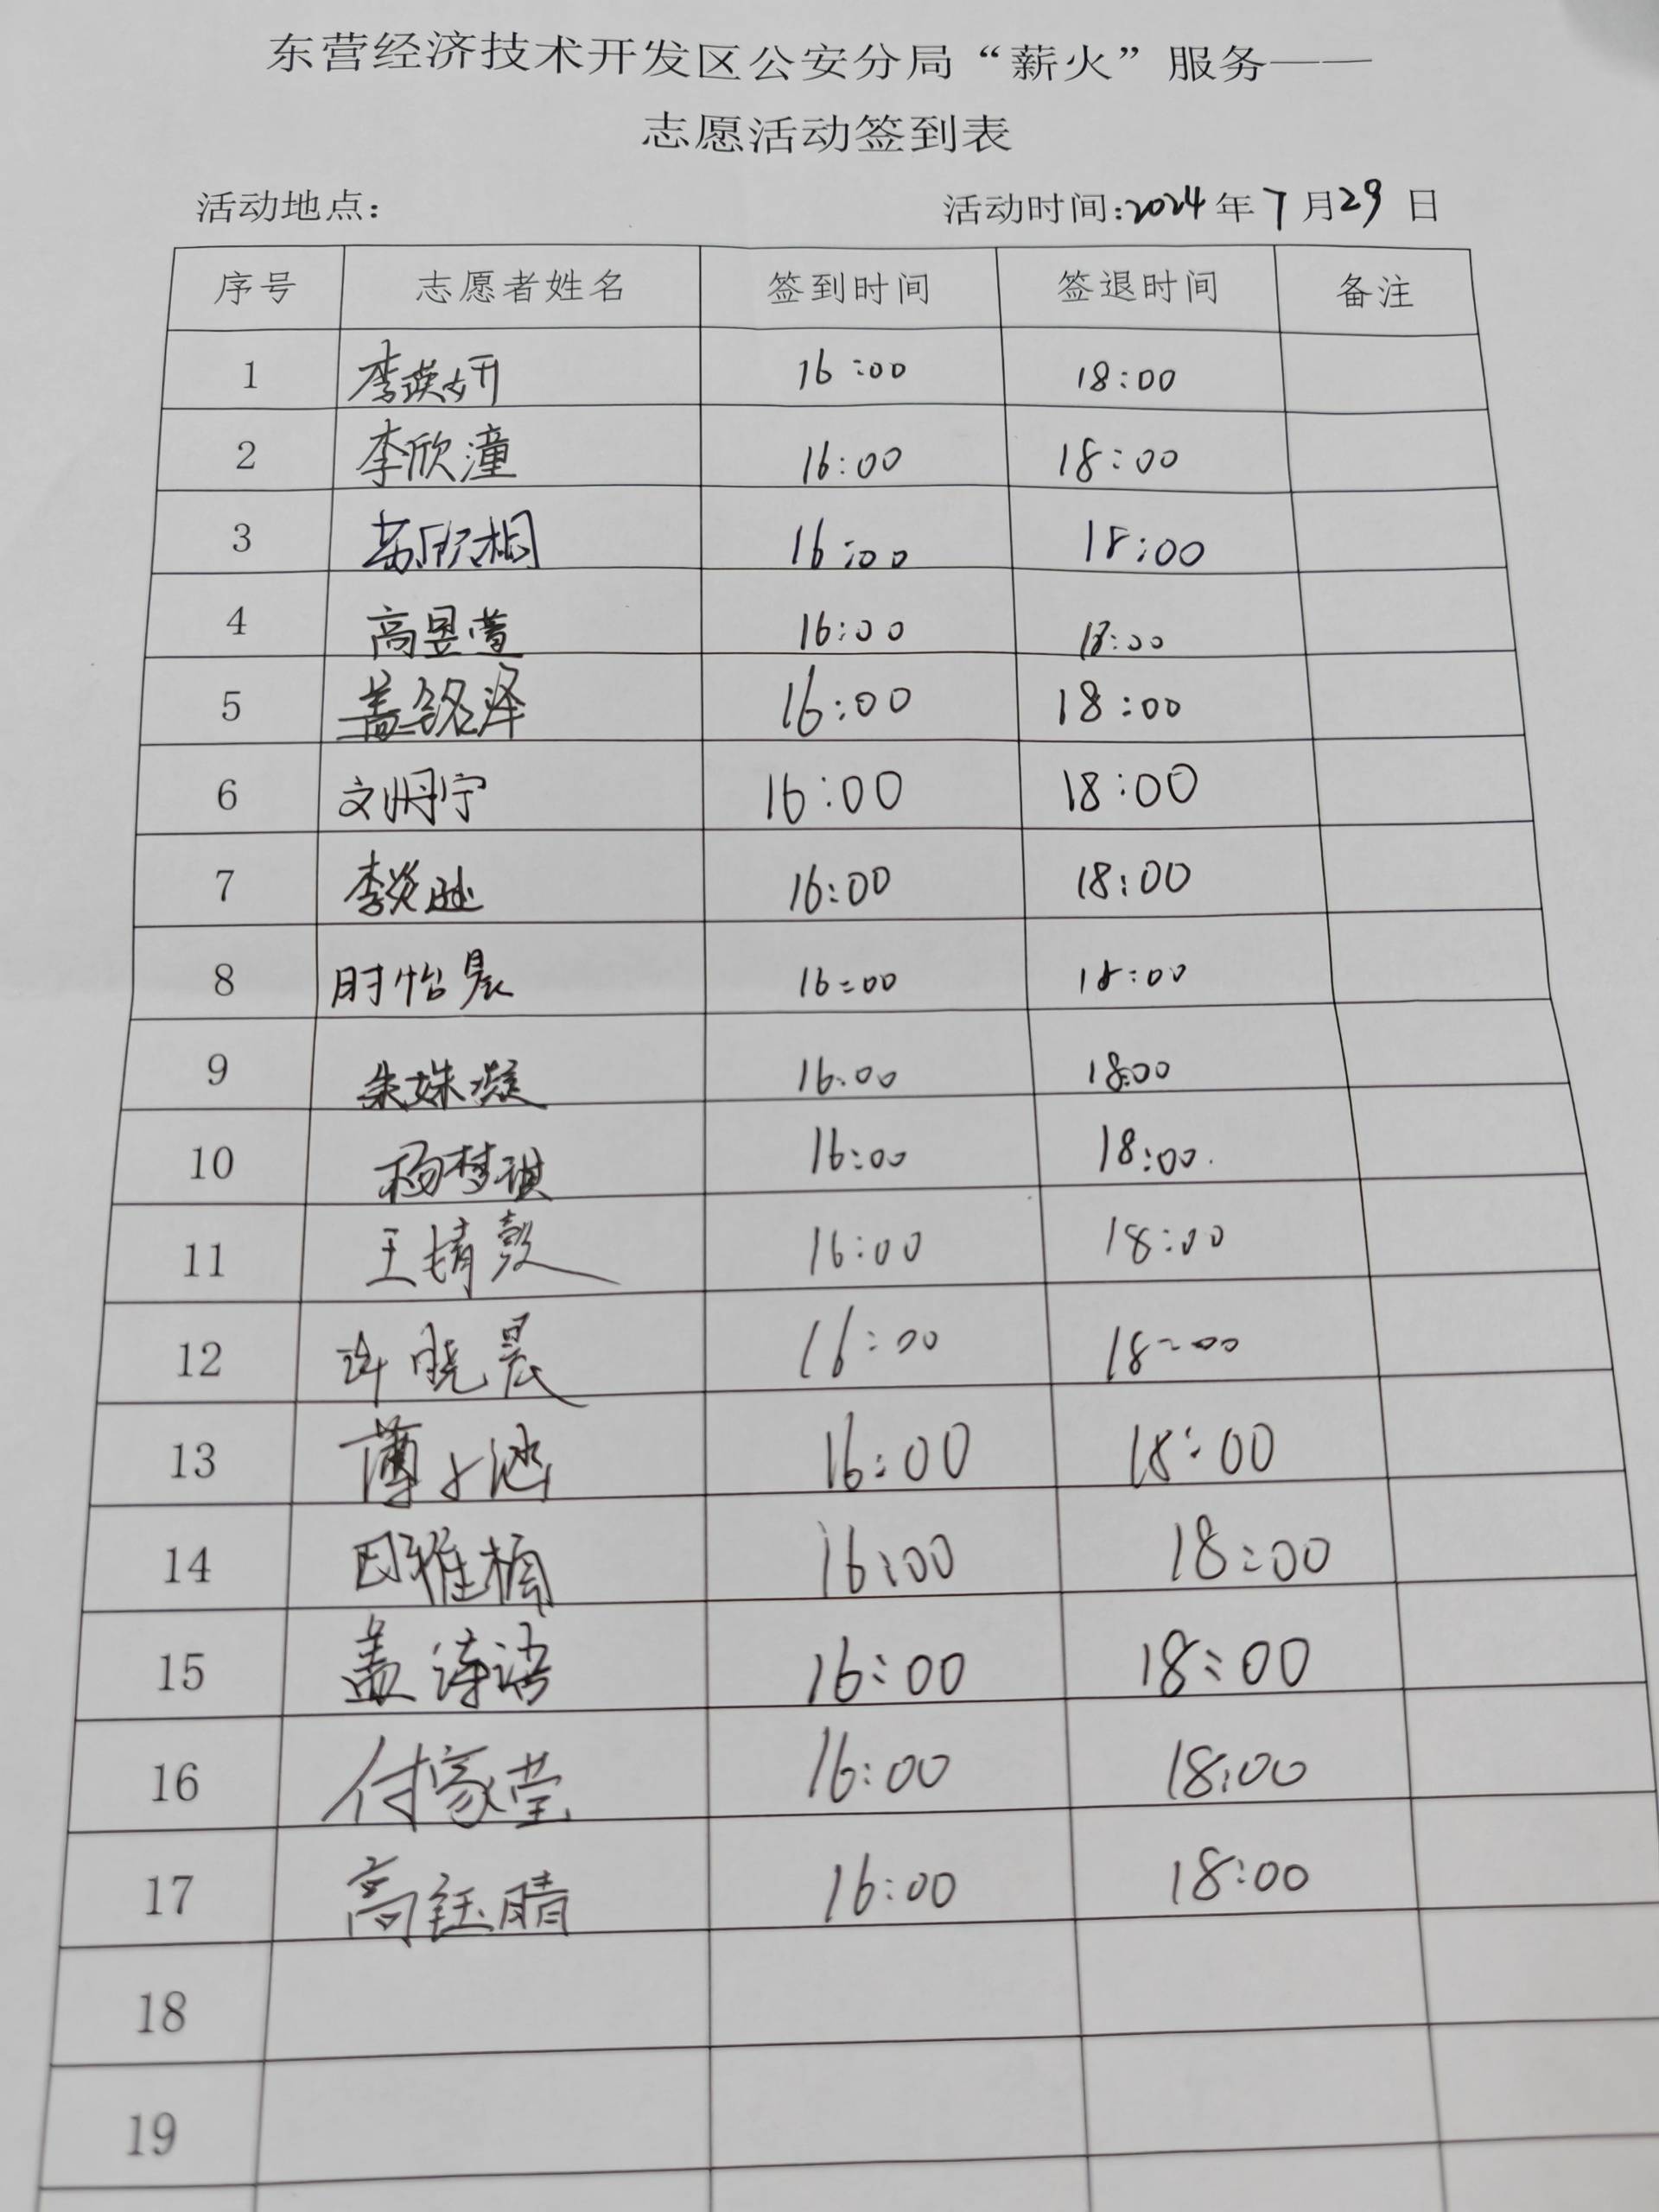 东营经济技术开发区公安分局“薪火”服务——
志愿活动签到表
活动地点: 活动时间:2024年7月29日
序号 志愿者姓名 签到时间 签退时间 备注
1 李瑛妍 16:00 18:00
2 李欣潼 16:00 18:00
3 苏欣桐 16:00 18:00
4 高昱萱 16:00 18:00
5 盖铭泽 16:00 18:00
6 刘丹宁 16:00 18:00
7 16:00 18:00
8 时怡晨 16:00 18:00
9 朱姝凝 16:00 18:00
10 杨梦祺 16:00 18:00
11 王婧毅 16:00 18:00
12 许晓晨 16:00 18:00
13 薄 涵 16:00 18:00
14 田雅楠 16:00 18:00
15 盖诗语 16:00 18:00
16 付家莹 16:00 18:00
17 高钰晴 16:00 18:00
18
19